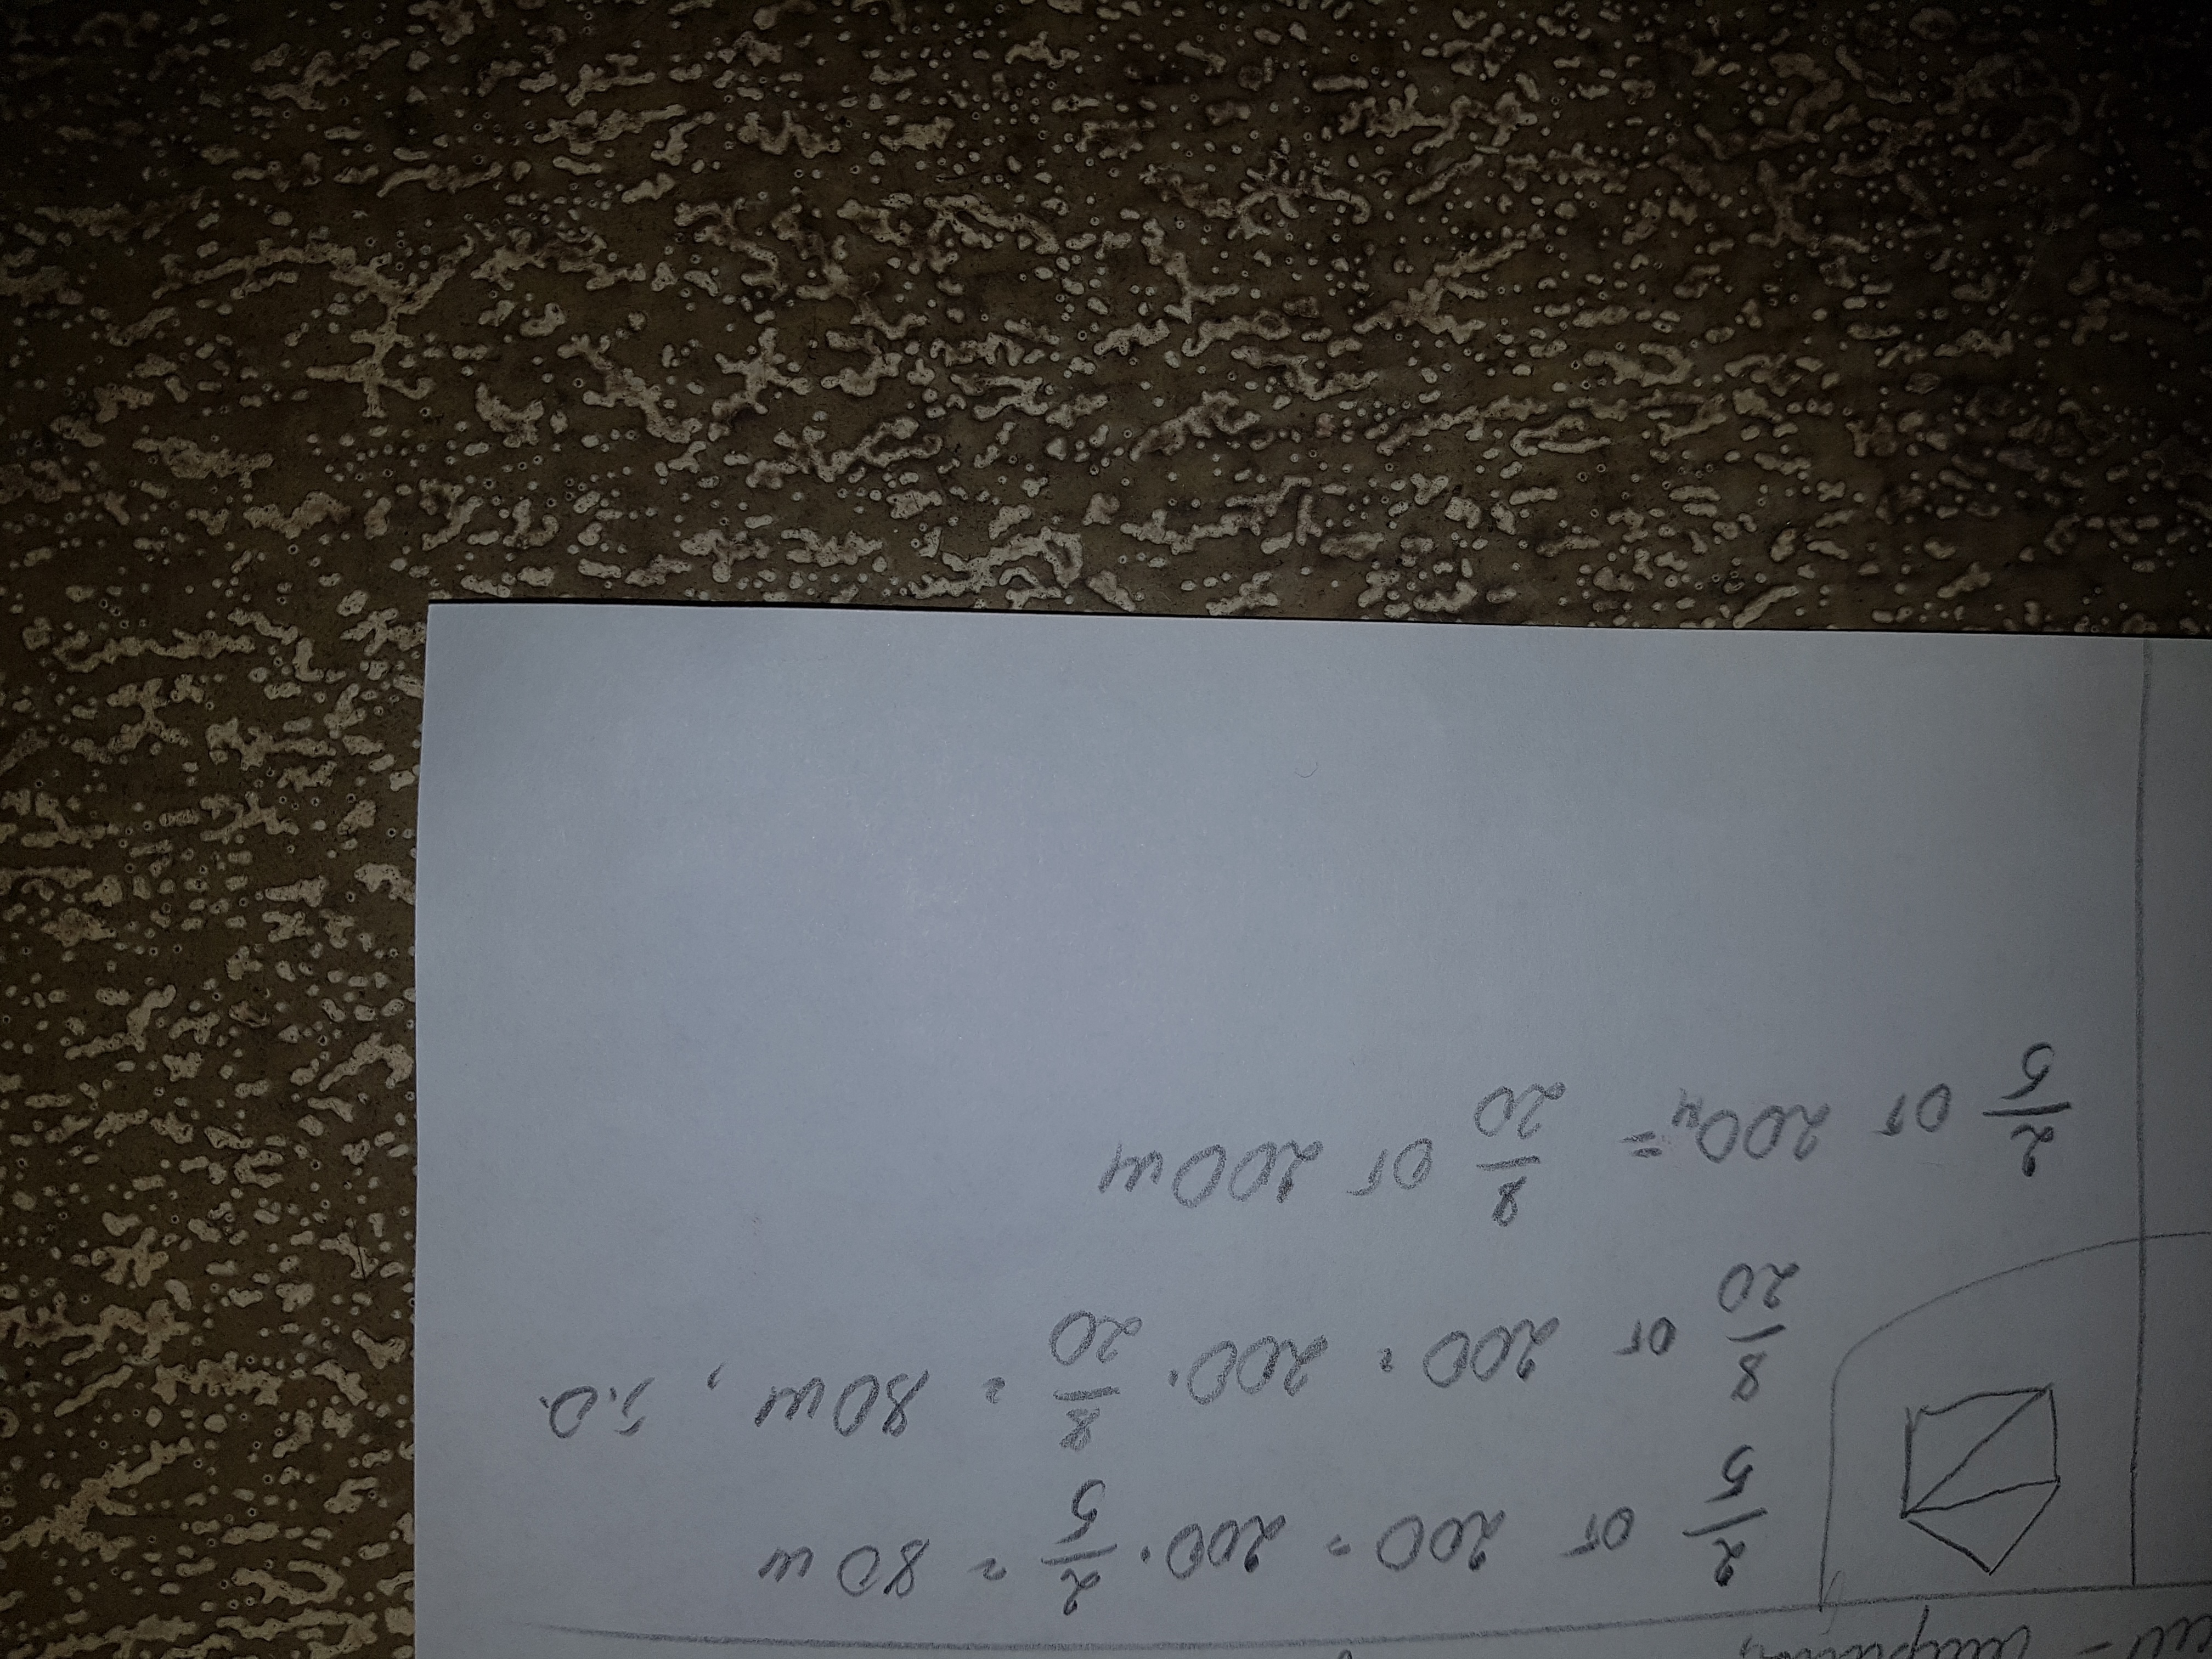 2/5 от 200 = 200 · 2/5 = 80 м
8/20 от 200 = 200 · 8/20 = 80 м, т.о.
2/5 от 200м = 8/20 от 200 м